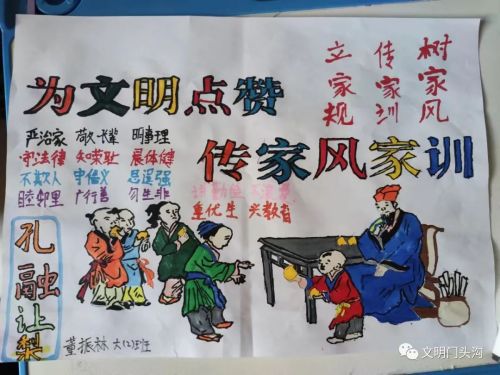 为文明点赞
树家风
传家训
立家规
传家风家训
严治家 敬长辈 明事理
守法律 知荣耻 展体健
不欺人 守信义 思进强
睦邻里 广行善 勿生非
重优生 兴教育
孔融让梨
董振林 大(2)班
文明门头沟